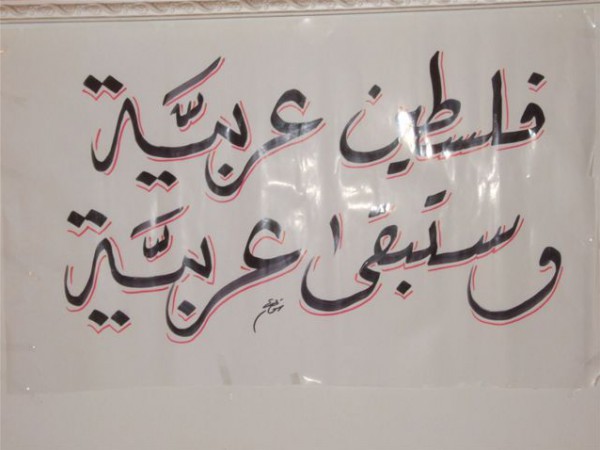 فلسطين عربيّة
وستبقى عربيّة